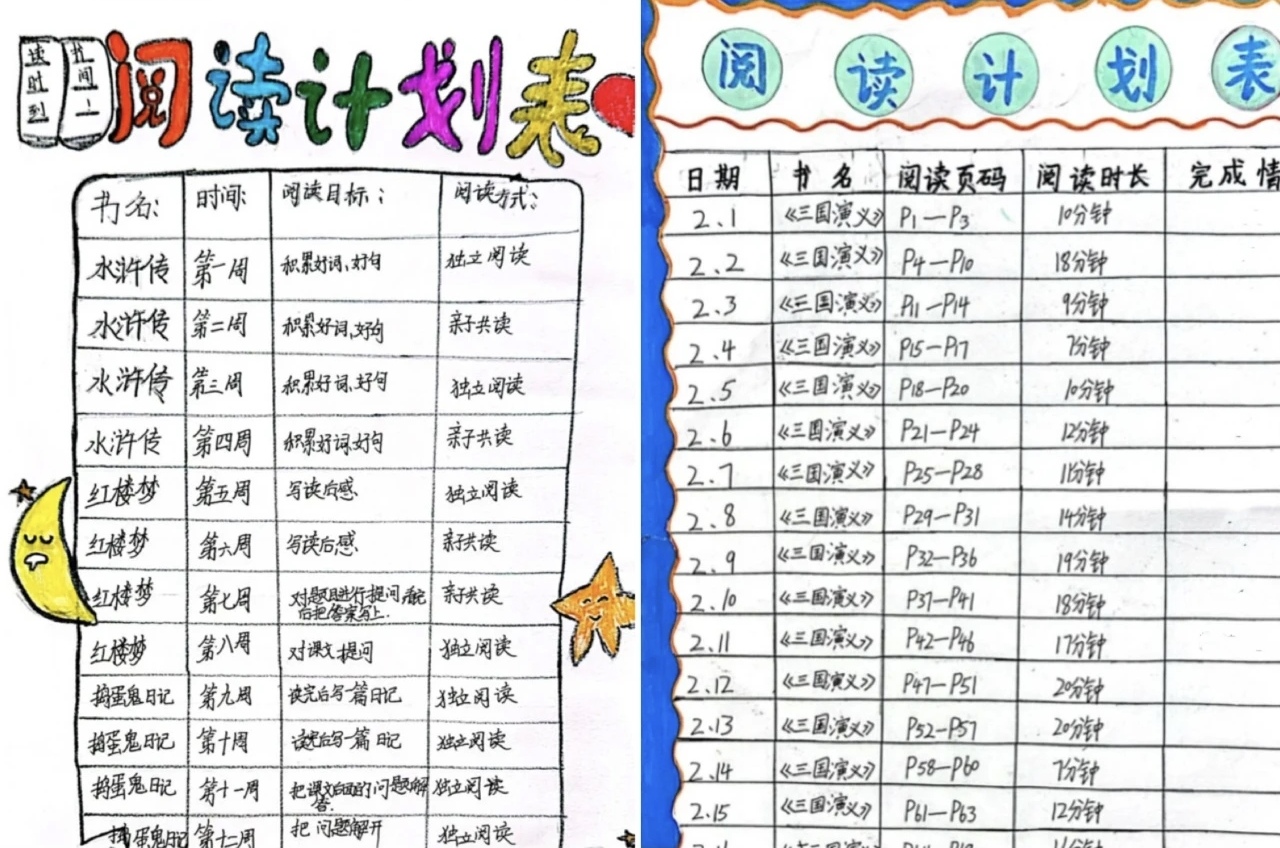 读书
时间
到!
阅读计划表
书名: 时间: 阅读目标: 阅读方式:
水浒传 第一周 积累好词、好句 独立阅读
水浒传 第二周 积累好词、好句 亲子共读
水浒传 第三周 积累好词、好句 独立阅读
水浒传 第四周 积累好词、好句 亲子共读
红楼梦 第五周 写读后感 独立阅读
红楼梦 第六周 写读后感 亲子共读
红楼梦 第七周 对题目进行提问
后把答案写上. 亲子共读
红楼梦 第八周 对课文提问 独立阅读
捣蛋鬼日记 第九周 读完后写一篇日记 独立阅读
捣蛋鬼日记 第十周 读完后写一篇日记 独立阅读
捣蛋鬼日记 第十一周 把课文的问题解
答. 独立阅读
捣蛋鬼日记 第十二周 把问题解开 独立阅读
阅读计划表
日期 书名 阅读页码 阅读时长 完成情
2.1 《三国演义》 P1—P3 10分钟
2.2 《三国演义》 P4—P10 18分钟
2.3 《三国演义》 P11—P14 9分钟
2.4 《三国演义》 P15—P17 7分钟
2.5 《三国演义》 P18—P20 10分钟
2.6 《三国演义》 P21—P24 12分钟
2.7 《三国演义》 P25—P28 11分钟
2.8 《三国演义》 P29—P31 14分钟
2.9 《三国演义》 P32—P36 19分钟
2.10 《三国演义》 P37—P41 18分钟
2.11 《三国演义》 P42—P46 17分钟
2.12 《三国演义》 P47—P51 20分钟
2.13 《三国演义》 P52—P57 20分钟
2.14 《三国演义》 P58—P60 7分钟
2.15 《三国演义》 P61—P63 12分钟